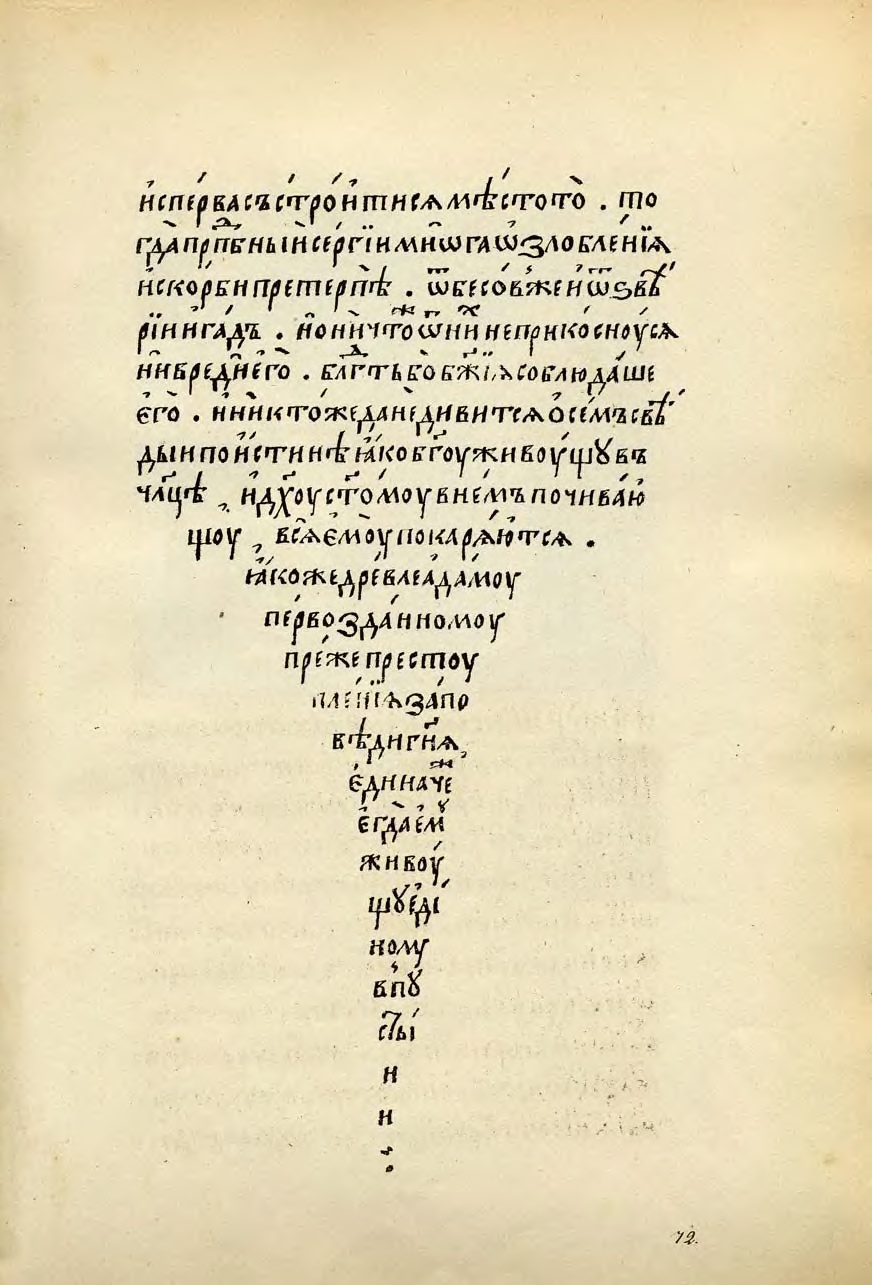 и҆спе́рва съ стро́итисѧ мѣ́сто то̀ . то
гда̀ прпⷣбныи сергїи мнѡга ѡѕлобле́нїѧ
и҆скорби претерпѣ̀ . ѿбесо́вже иѿзвѣ
рїи и га̀дъ . но ничто́жⷤ ѿни́хⷯ неприкосноусѧ
нивреди̑ е҆го̀ . блгⷣть бо бж҃їѧ соблюда́ше
є҆го̀ . и҆никтоже да недивитсѧ ѡсемъ свѣ́
ды и҆ поистиннѣ ꙗ҆́ко бг҃оу живоу́щꙋ въ
чл҃цѣ , и҆ дх҃оу ст҃омоу в не́мъ почива́ю
щоу , всѧ̑ є҆моу покарѧ́ютсѧ .
ꙗ҆́коже дре́вле ада́моу
пе́рвозда́нномоу
пре́же престоу
пле́нїѧ за́по
вѣ́ди гн҃ѧ ,
є҆ди́наче жⷤ
є҆гда̀ е҆мꙋ
живоу́
щꙋ е҆ді́
ному
в пꙋ
сты́
н
и